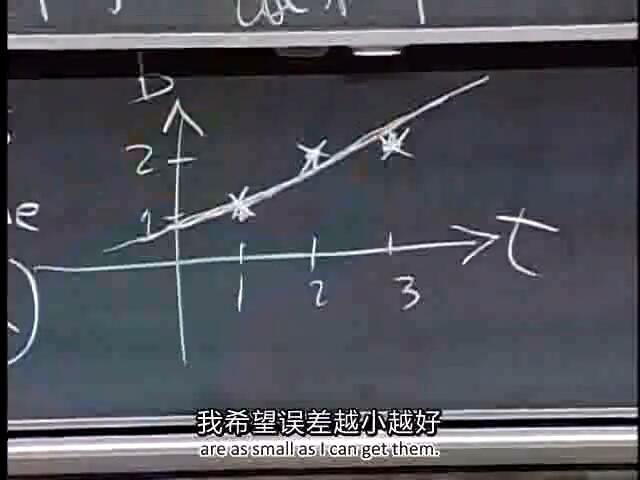 b
2
1
t
1 2 3
我希望误差越小越好
are as small as I can get them.